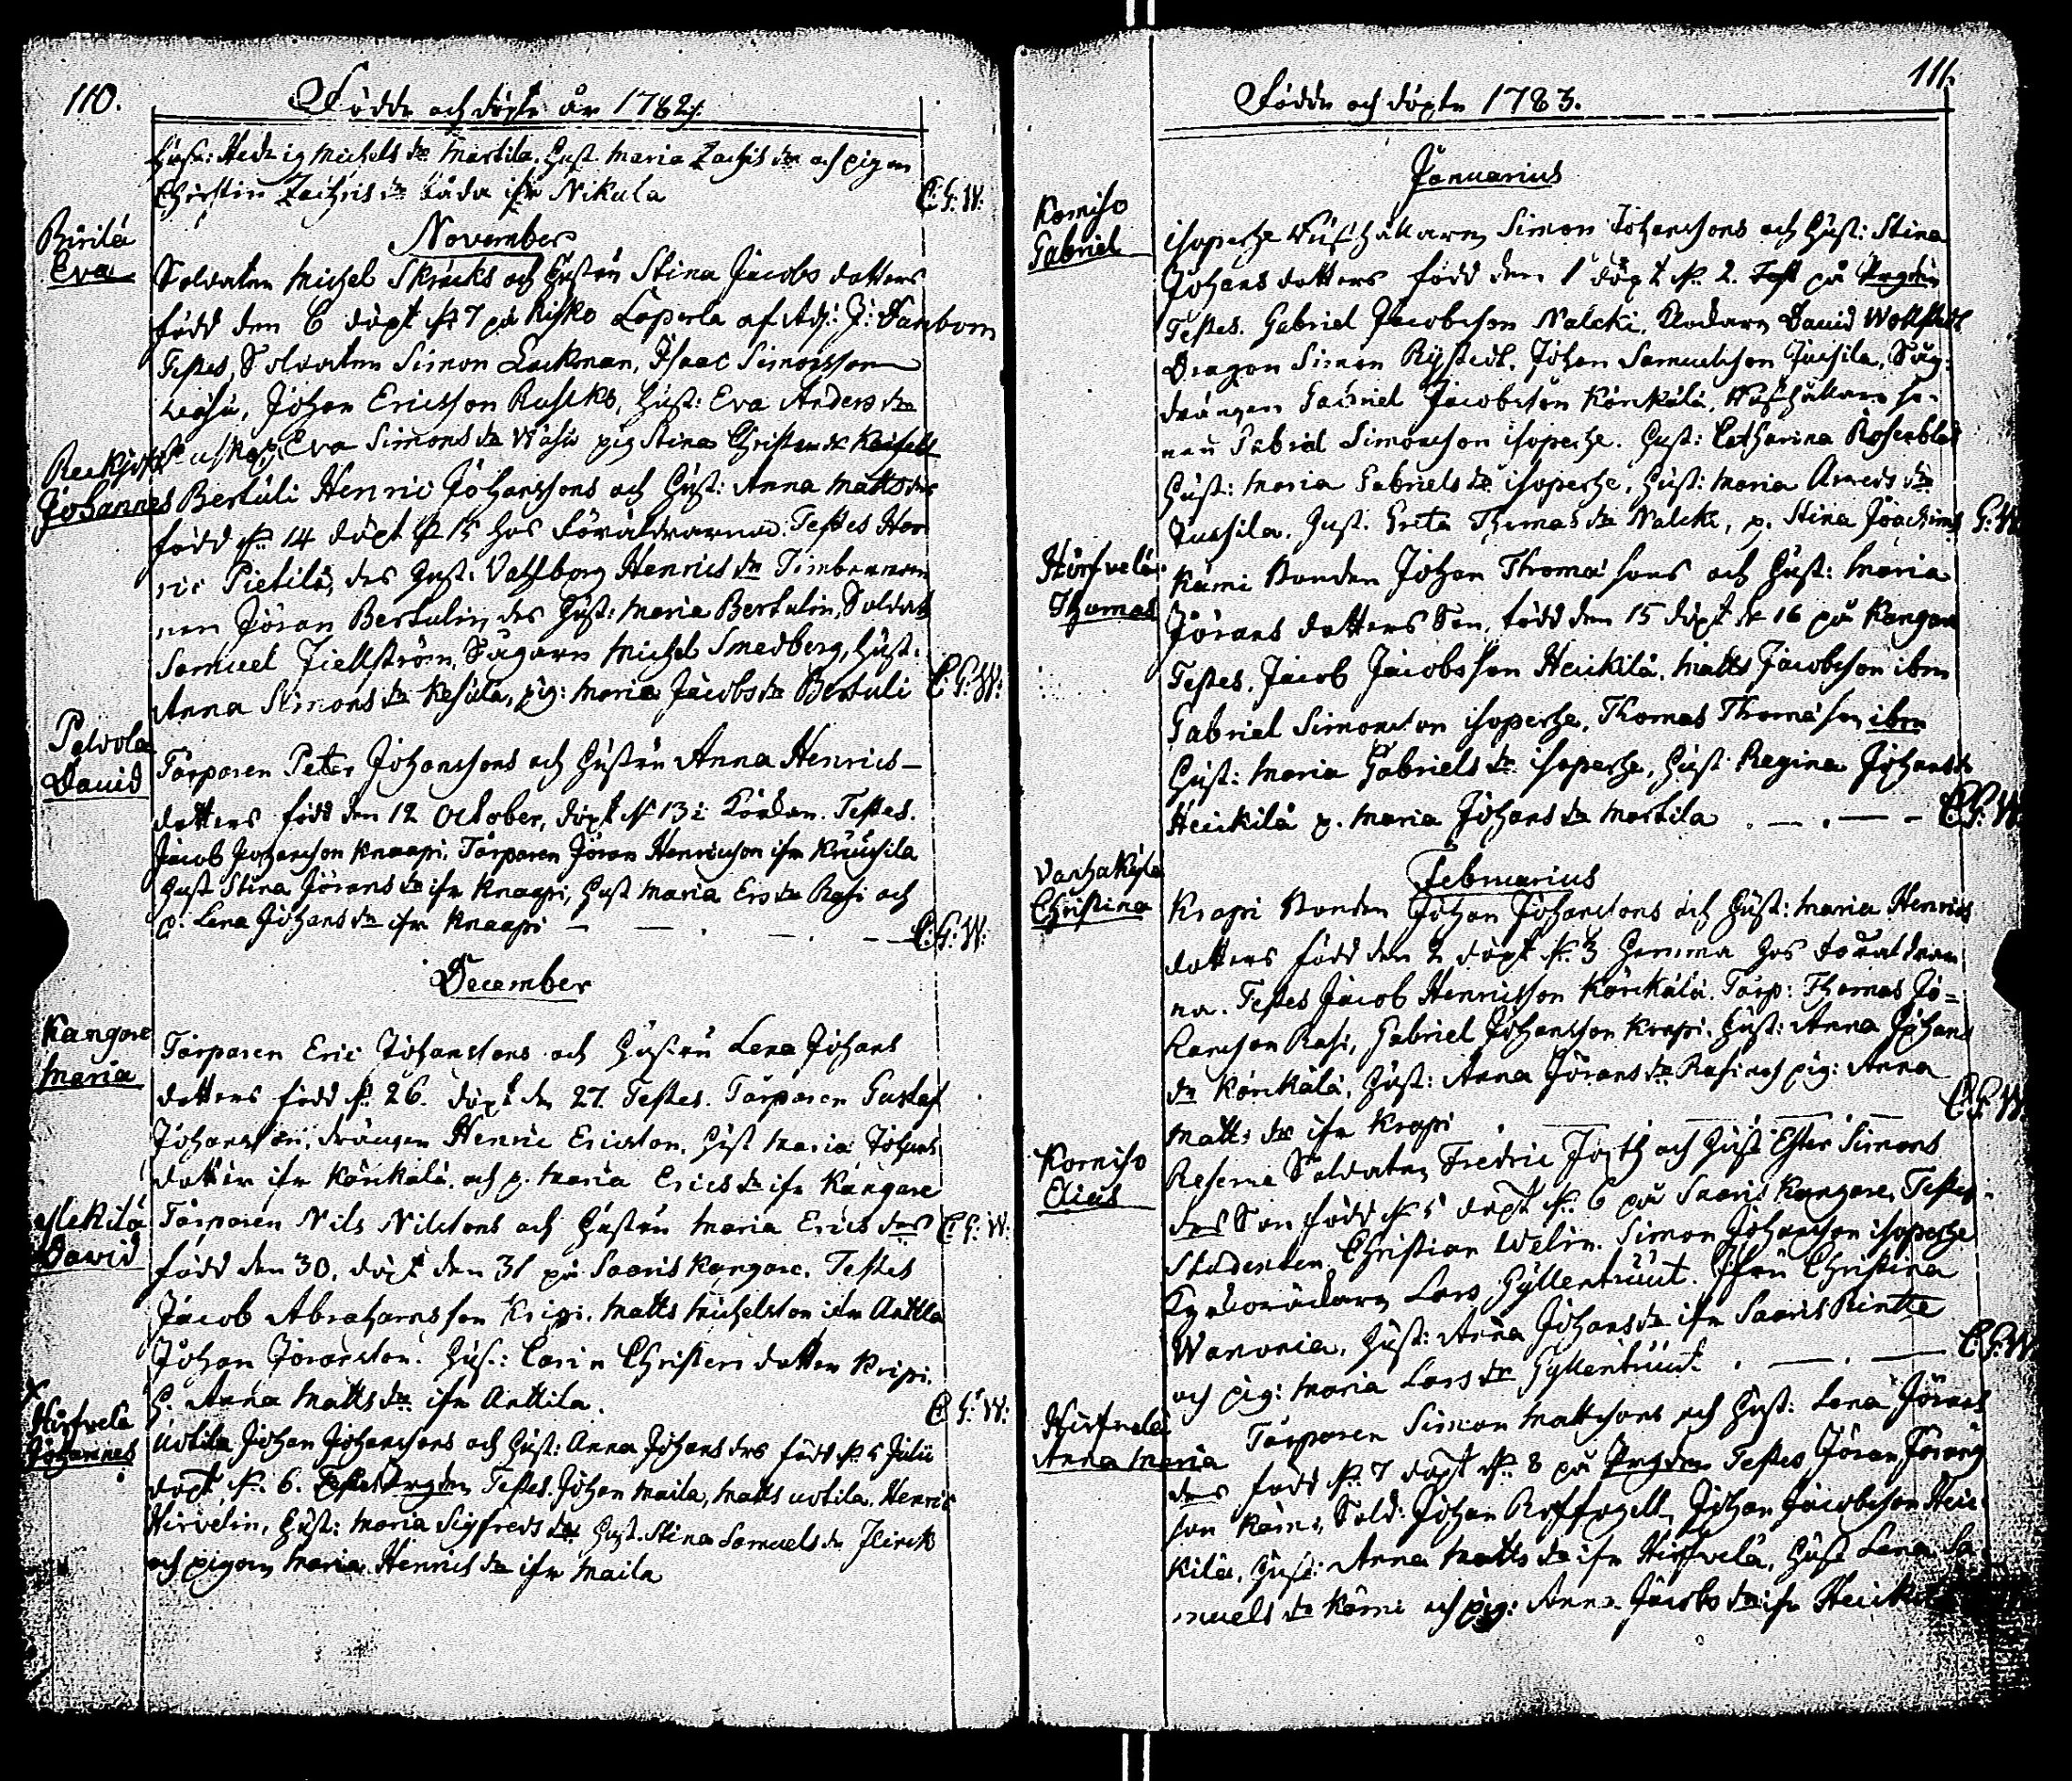 110.
Födde och döpte år 1782.
Hust: Hedvig Michels dr Martila. Hust Maria Zachris dr och pigan
Christin Zachris dr båda ifr Nikula
C:G:W:
November
Pirilä
Eva
Soldaten Michel Skräcks och Hustru Stina Jacobs dotters
född den 6 döpt d 7 på Risko Laperla af Adj: J: Danbom
Testes, Soldaten Simon Lackman, Isaac Simonsson
Johan Ericsson Rusko, Hust: Eva Anders dr
Eva Simons dr pig Stina Christers dr
Johannes
Bertuli Henric Johanssons och Hust: Anna Matts drs
född d. 14 döpt d 15 hos Föräldrarna. Testes Hen
ric Pietilä, des Hust: Valborg Henrics dr Timberman
nen Jöran Bertulin, des Hust: Maria Bertulin, Soldat
Samuel Fiellström, Sågarn Michel Smedberg, Hust:
Anna Simons dr Kesula, pig: Maria Jacobs dr Bertuli
C:G:W:
Palvola
David
Torparen Peter Johanssons och Hustru Anna Henrics-
dotters född den 12 October, döpt d 13 i Kyrkan. Testes.
Jacob Johansson Knaapi, Torparen Jöran Henricsson ifr Kruusila
Hust Stina Jörans dr ifr Knaapi, Hust Maria Ers dr Rasi och
p. Lena Johans dr ifr Knaapi
C:G:W:
December
Kangare
Maria
Torparen Eric Johanssons och Hustru Lena Johans
dotters född d. 26. döpt den 27. Testes. Torparen Gustaf
Johansson, drängen Henric Ericsson, Hust Maria Johans
dotter ifr Körckälä, och p. Maria Erics dr ifr Kangare
David
Torparen Nils Nilssons och Hustru Maria Erics drs
C:G:W:
född den 30. döpt den 31 på Saaris Kangare. Testes
Jacob Abrahamsson Kripi. Matts Michelsson ifr Anttila
Johan Jöransson. Hust: Carin Christers dotter Kripi.
H. Anna Matts dr ifr Anttila.
C:G:W:
x
Hirfvelä
Johannes
Uotila Johan Johanssons och Hust: Anna Johans drs född d. 5 Julii
döpt d. 6. Testes. Johan Maila, Matts Uotila, Henric
Hirvelin, Hust: Maria Sigfreds dr Hust. Stina Samuels dr
och pigan Maria Henrics dr ifr Maila
111.
Födde och döpte 1783.
Januarius
Komiso
Gabriel
Isoperhe Rusthållaren Simon Johanssons och Hust: Stina
Johans dotters född den 1 döpt d. 2. på
Testes. Gabriel Jacobsson Nalcki, Klockarn David Wollstedt
Dragon Simon Rystedt. Johan Samuelsson Jussila, Såg:
drängen Gabriel Jacobsson Körckälä, Rusthållare so-
nen Gabriel Simonsson isoperhe. Hust: Catharina Rosenblad
Hust: Maria Gabriels dr isoperhe, Hust: Maria dr
Jussila. Hust. Greta Thomas dr Nalcki, p. Stina Joachims
G:W
Hirfvelä
Thomas
Kämi Bonden Johan Thomassons och Hust: Maria
Jörans dotters Son, född den 15 döpt d 16 på Kangare
Testes, Jacob Jacobsson Heickilä, Matts Jacobsson ibm
Gabriel Simonsson isoperhe, Thomas Thomasson ibm
Hust: Maria Gabriels dr isoperhe, Hust Regina Johans dr
Heickilä p. Maria Johans dr Martila
C:G:W
Februarius
Vanhakylä
Christina
Krapi Bonden Johan Johanssons och Hust: Maria Henrics
dotters född den 2 döpt d. 3 Hemma hos föräldrar
na. Testes Jacob Henricsson Körckälä. Torp: Thomas Jö=
ransson Rasi, Gabriel Johansson Krapi. Hust: Anna Johans
dr Körckälä, Hust: Anna Jörans dr Rasi och pig: Anna
Matts dr ifr Krapi
C:G:W
Komiso
Elias
Reserve Soldaten Fredric och Hust Ester Simons
drs Son född d 5 döpt d. 6 på Saaris Kangare, Testes
Studenten Christian Welin. Simon Johansson isoperhe
Lars Gyllentruut. Jfru Christina
Wanonia, Hust: Anna Johans dr ifr Saaris Rintte
och pig: Maria Lars dr Gyllentruut
C:G:W
Hirfvelä
Anna Maria
Torparen Simon Mattssons och Hust: Lena Jörans
drs född d. 7 döpt d. 8 på Testes Jöran Jörans
son Kämi, Sold: Johan Johan Jacobsson Heic
kilä, Hust: Anna Matts dr ifr Hirfvelä, Hust Lena Sa
muels dr Kämi och pig: Anna Jacobs dr ifr Heickilä